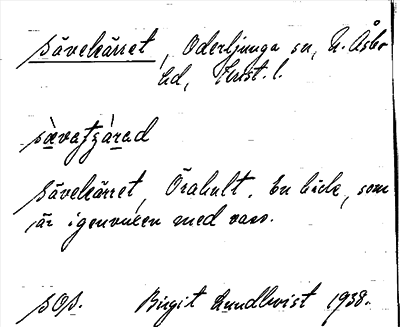 Sävekärret, Oderljunga sn, N. Åsbo
hd, Krist. l.
Sävekärret, Örahult. En bäck, som
är igenvuxen med vass.
SOS. Birgit Lundkvist 1938.